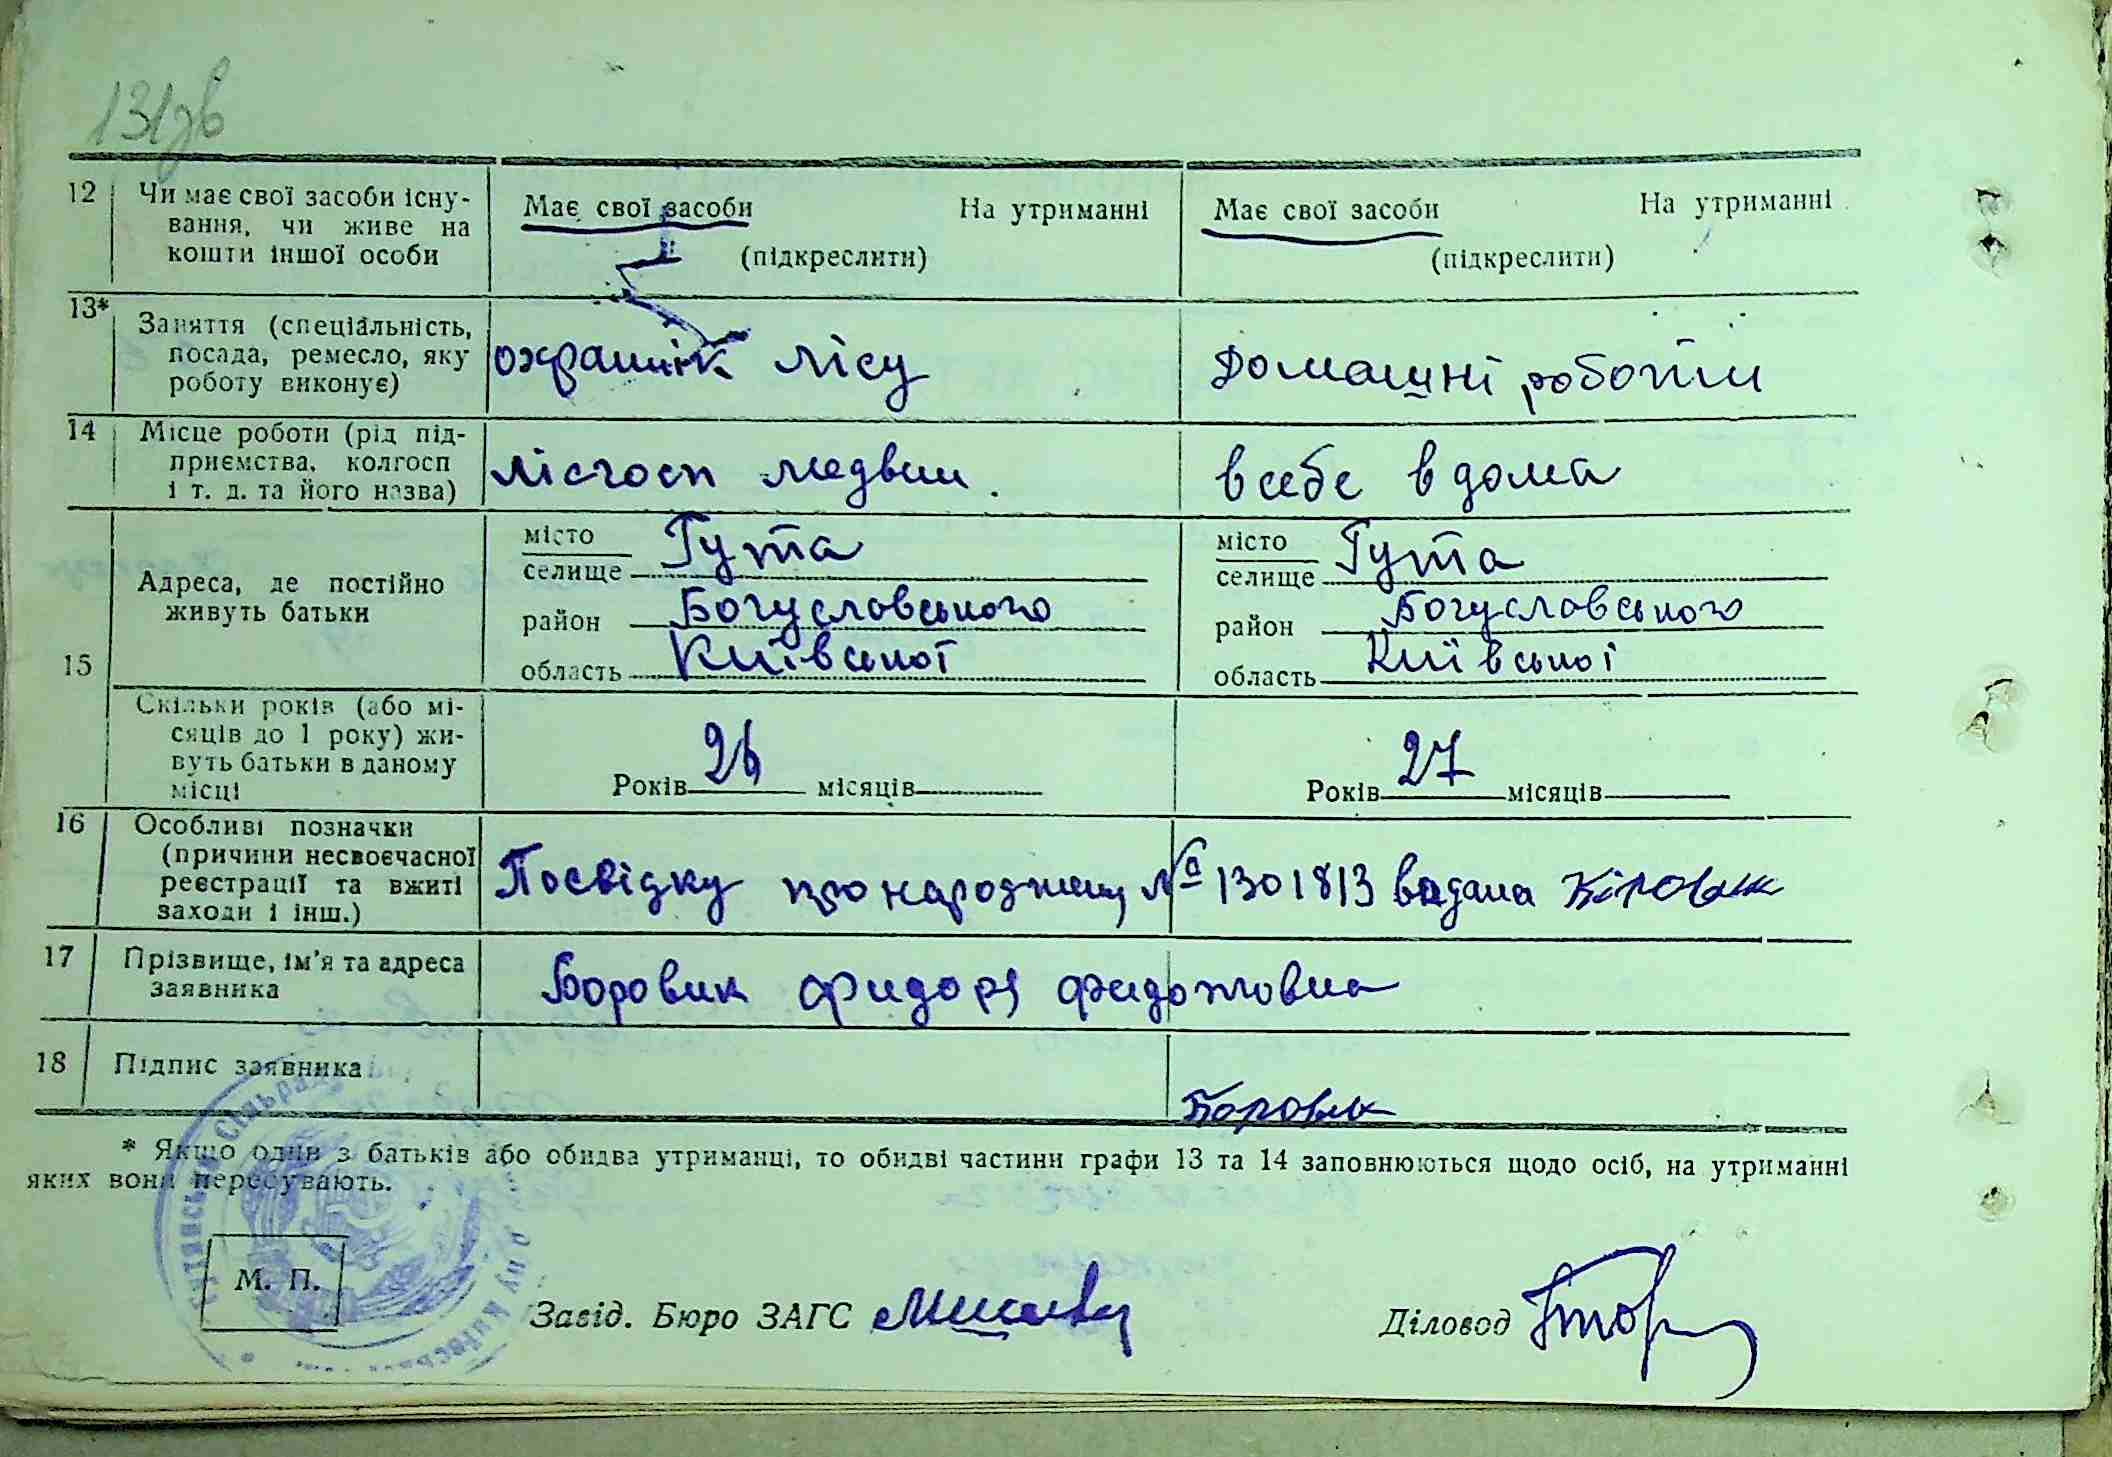 131зв
12 Чи має свої засоби існу-
вання, чи живе на
кошти іншої особи
Має свої засоби На утриманні
(підкреслити)
Має свої засоби На утриманні
(підкреслити)
13* Заняття (спеціальність,
посада, ремесло, яку
роботу виконує)
охрашнік лісу
Домашні роботи
14 Місце роботи (рід під-
приємства, колгосп
і т. д. та його назва)
лісгосп медвин.
в себе в дома
15 Адреса, де постійно
живуть батьки
місто
селище Гута
район Богуславського
область Київської
місто
селище Гута
район Богуславського
область Київської
Скільки років (або мі-
сяців до 1 року) жи-
вуть батьки в даному
місці
Років 26 місяців
Років 27 місяців
16 Особливі позначки
(причини несвоєчасної
реєстрації та вжиті
заходи і інш.)
Посвідку про народжену № 1301813 видана
17 Прізвище, ім'я та адреса
заявника
Боровик Фидора Федотовна
18 Підпис заявника
Боровик
* Якщо один з батьків або обидва утриманці, то обидві частини графи 13 та 14 заповнюються щодо осіб, на утриманні
яких вони перебувають.
М. П.
Завід. Бюро ЗАГС
Діловод